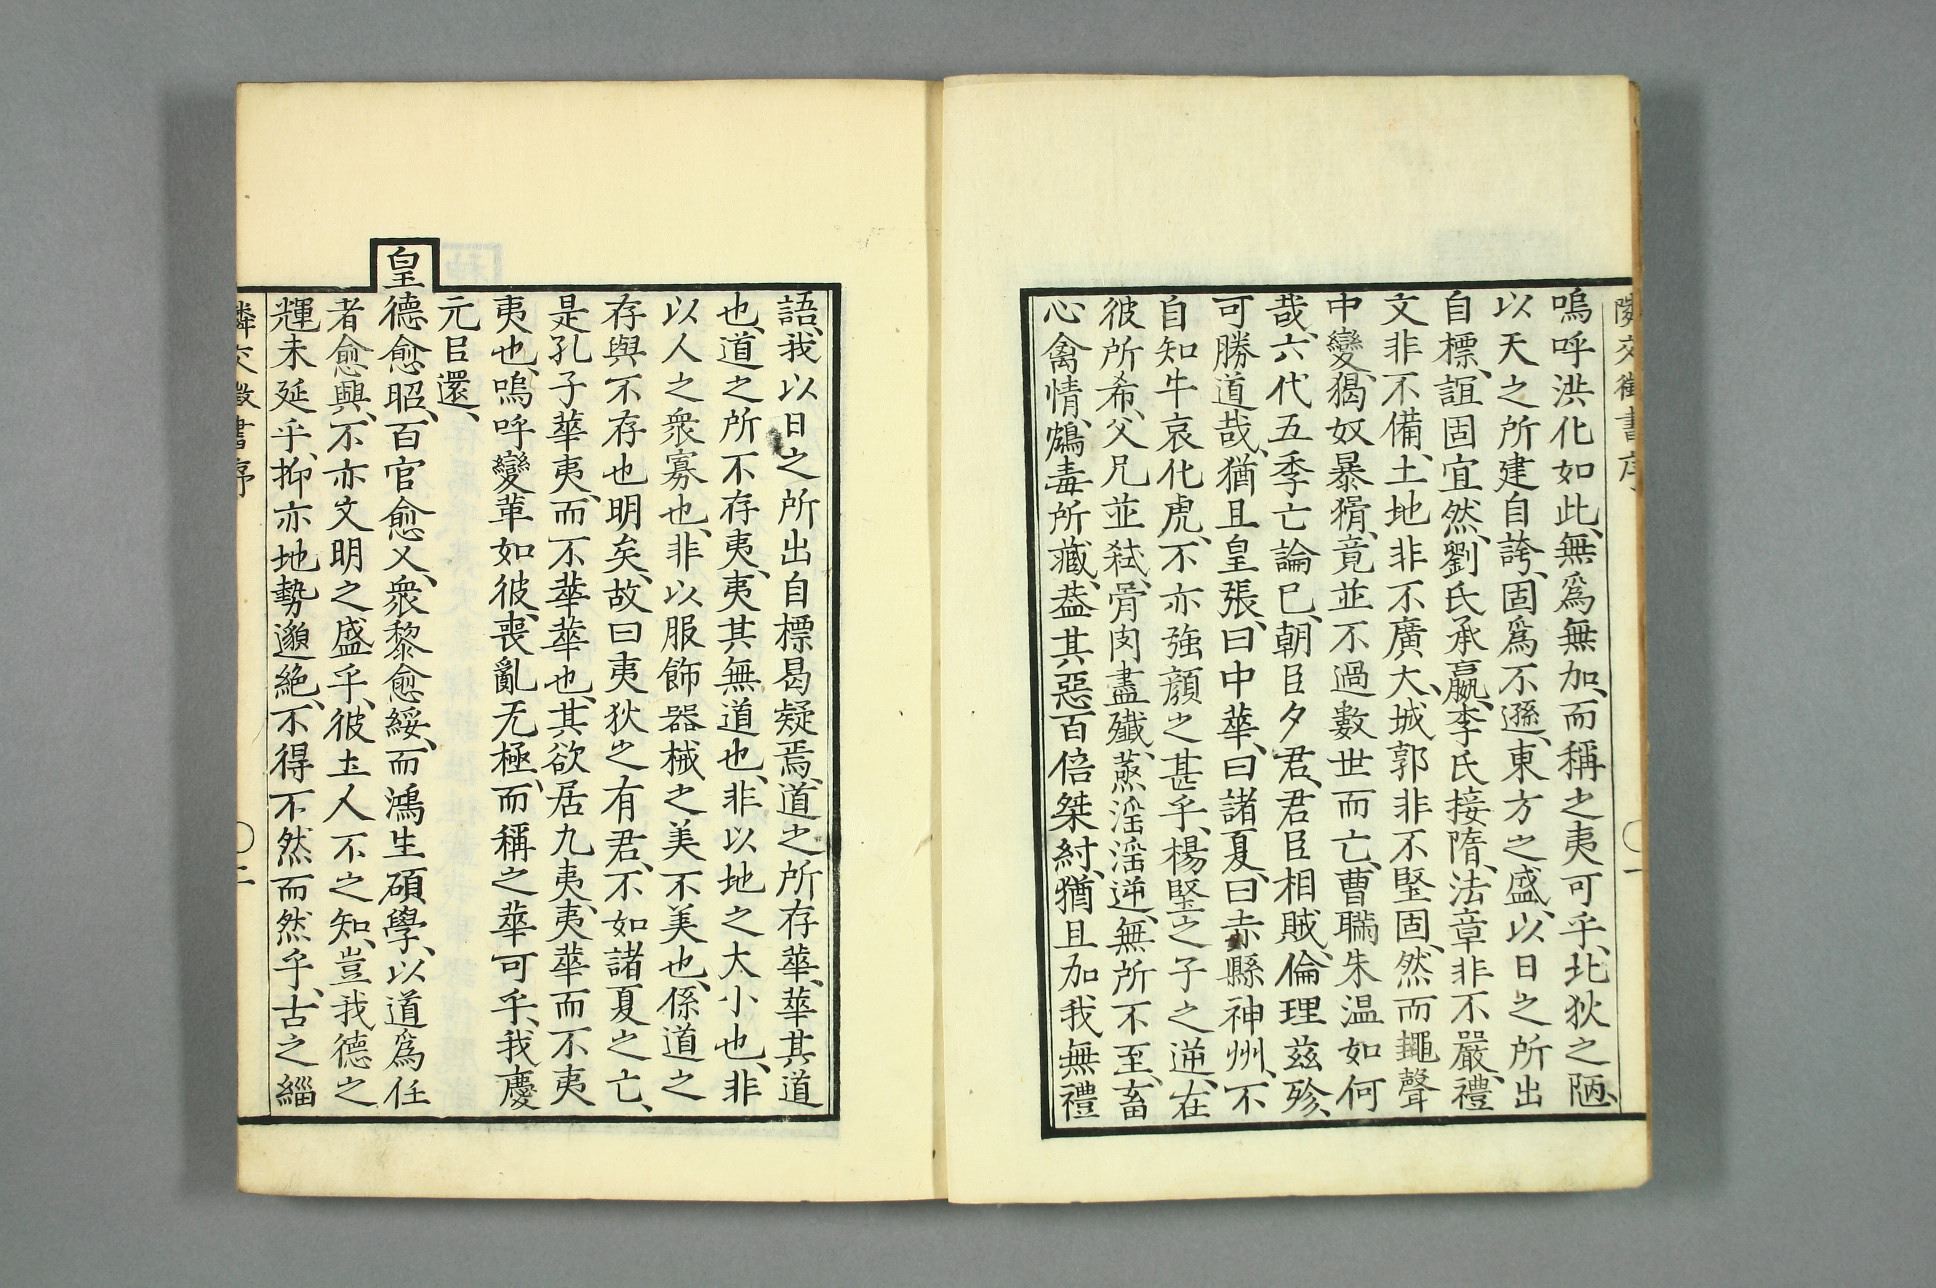 隣交徵書序
〇一
嗚呼洪化如此、無爲無加、而稱之夷可乎、北狄之陋、
以天之所建自誇、固爲不遜、東方之盛、以日之所出
自標、誼固宜然、劉氏承嬴、李氏接隋、法章非不嚴、禮
文非不備、土地非不廣大、城郭非不堅固、然而蠅聲
中變、獦奴暴猾、竟並不過數世而亡、曹瞞朱温如何
哉、六代五季亡論已、朝臣夕君、君臣相賊、倫理茲殄、
可勝道哉、猶且皇張、曰中華、曰諸夏、曰赤縣神州、不
自知牛哀化虎、不亦強顔之甚乎、楊堅之子之逆、在
彼所希、父兄並弒、骨肉盡殲、蒸淫淫逆、無所不至、畜
心禽情、鴆毒所藏、葢其惡百倍桀紂、猶且加我無禮
語、我以日之所出自標曷疑焉、道之所存華、華其道
也、道之所不存夷、夷其無道也、非以地之大小也、非
以人之衆寡也、非以服飾器械之美不美也、係道之
存與不存也明矣、故曰夷狄之有君、不如諸夏之亡、
是孔子華夷、而不華華也、其欲居九夷、夷華而不夷
夷也、嗚呼變革如彼、喪亂无極、而稱之華可乎、我慶
元臣還、
皇德愈昭、百官愈乂、衆黎愈綏、而鴻生碩學、以道爲任
者愈興、不亦文明之盛乎、彼土人不之知、豈我德之
輝未延乎、抑亦地勢邈絶、不得不然而然乎、古之緇
隣交徵書序
〇二